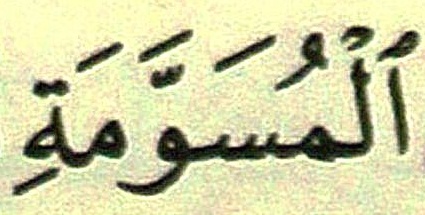 ٱلْمُسَوَّمَةِ